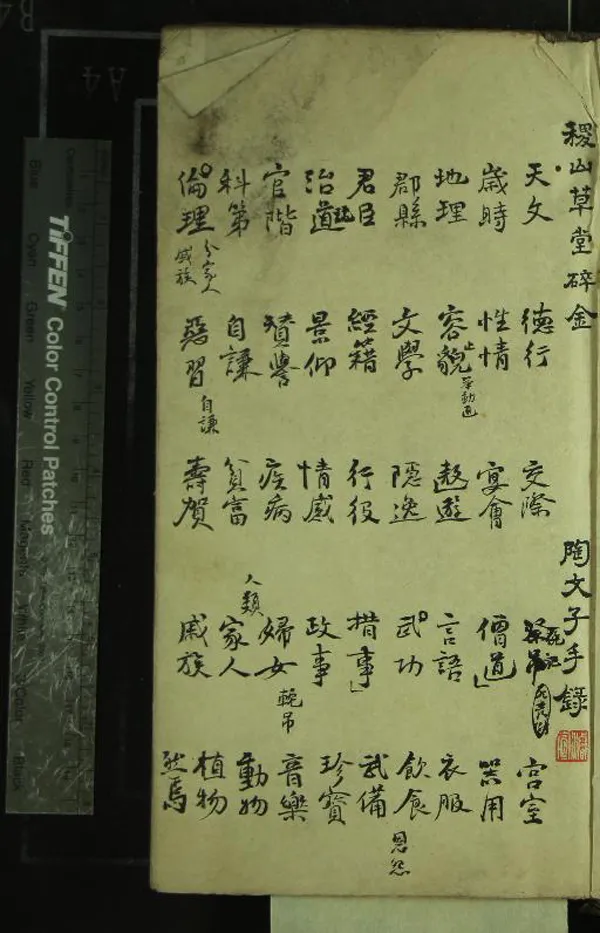 稷山草堂碎金 陶文子手錄
天文 德行 交際 宮室
歲時 性情 宴會 僧道 器用
地理 容貌 遨遊 言語 衣服
止
舉動通
郡縣 文學 隱逸 武功 飲食
恩怨
君臣 經籍 行役 措事 武備
治道 景仰 情感 政事 珍寶
官階 贊譽 疾病 婦女 音樂
輓吊
科第 自謙 貧富 家人 動物
人類
倫理 惡習 壽賀 戚族 植物
分家人
戚族
自謙
然焉
TIFFEN Color Control Patches
Blue Cyan Green Yellow Red Magenta White 3/Color Black
A4